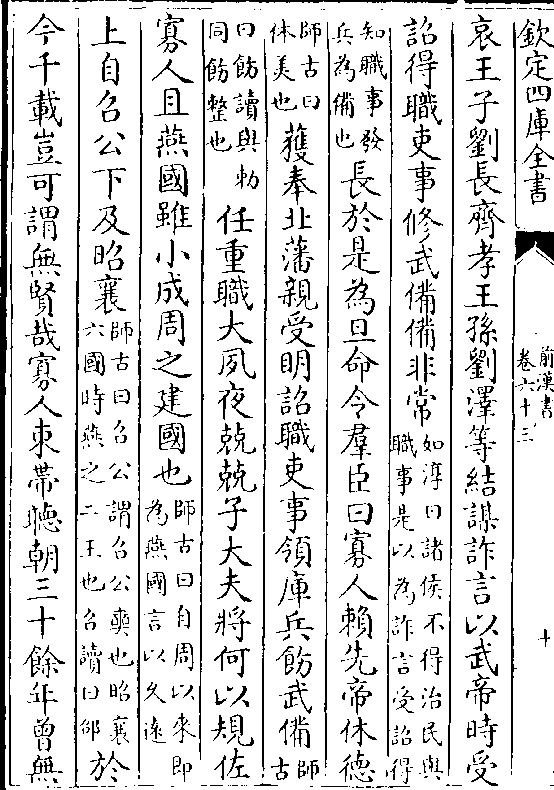 欽定四庫全書
前漢書
卷六十三
十
哀王子劉長齊孝王孫劉澤等結謀詐言以武帝時受
詔得職吏事修武備備非常如淳曰諸侯不得治民與職事是以為詐言受詔得
知職事發兵為備也長於是為旦命令羣臣曰寡人賴先帝休德
師古曰休美也獲奉北藩親受明詔職吏事領庫兵飭武備師古
曰飭讀與勅同飭整也任重職大夙夜兢兢子大夫將何以規佐
寡人且燕國雖小成周之建國也師古曰自周以來即為燕國言以久遠
上自召公下及昭襄師古曰召公謂召公奭也昭襄六國時燕之二王也召讀曰邵於
今千載豈可謂無賢哉寡人束帶聴朝三十餘年曾無